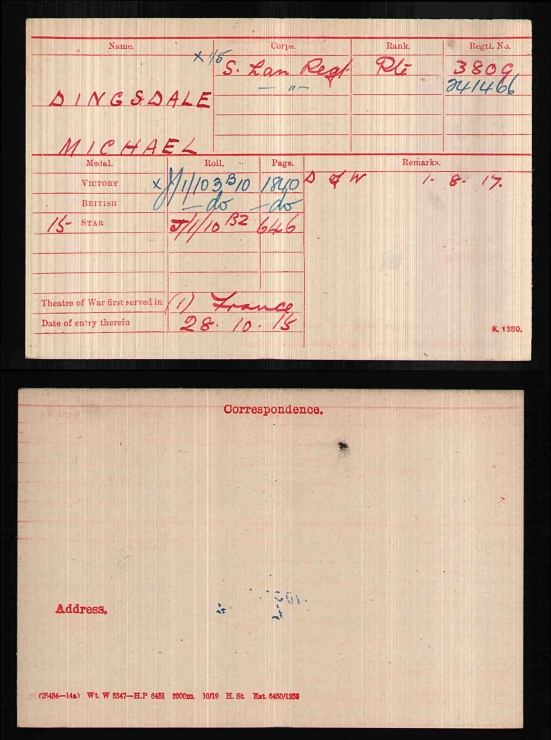 Name. Corps. Rank. Regtl. No.
x 1/5 S. Lan Regt Pte 3809
DINGSDALE — " — 241466
MICHAEL
Medal. Roll. Page. Remarks.
VICTORY x J/1/103 B10 1840 D of W 1. 8. 17.
BRITISH — do — do
15 STAR J/1/10 B2 646
Theatre of War first served in (1) France
Date of entry therein 28. 10. 15
K. 1380.
Correspondence.
Address,
(25454—14a) Wt. W 5347—H.P 6451 2000m. 10/19 H. St. Est. 6450/1253